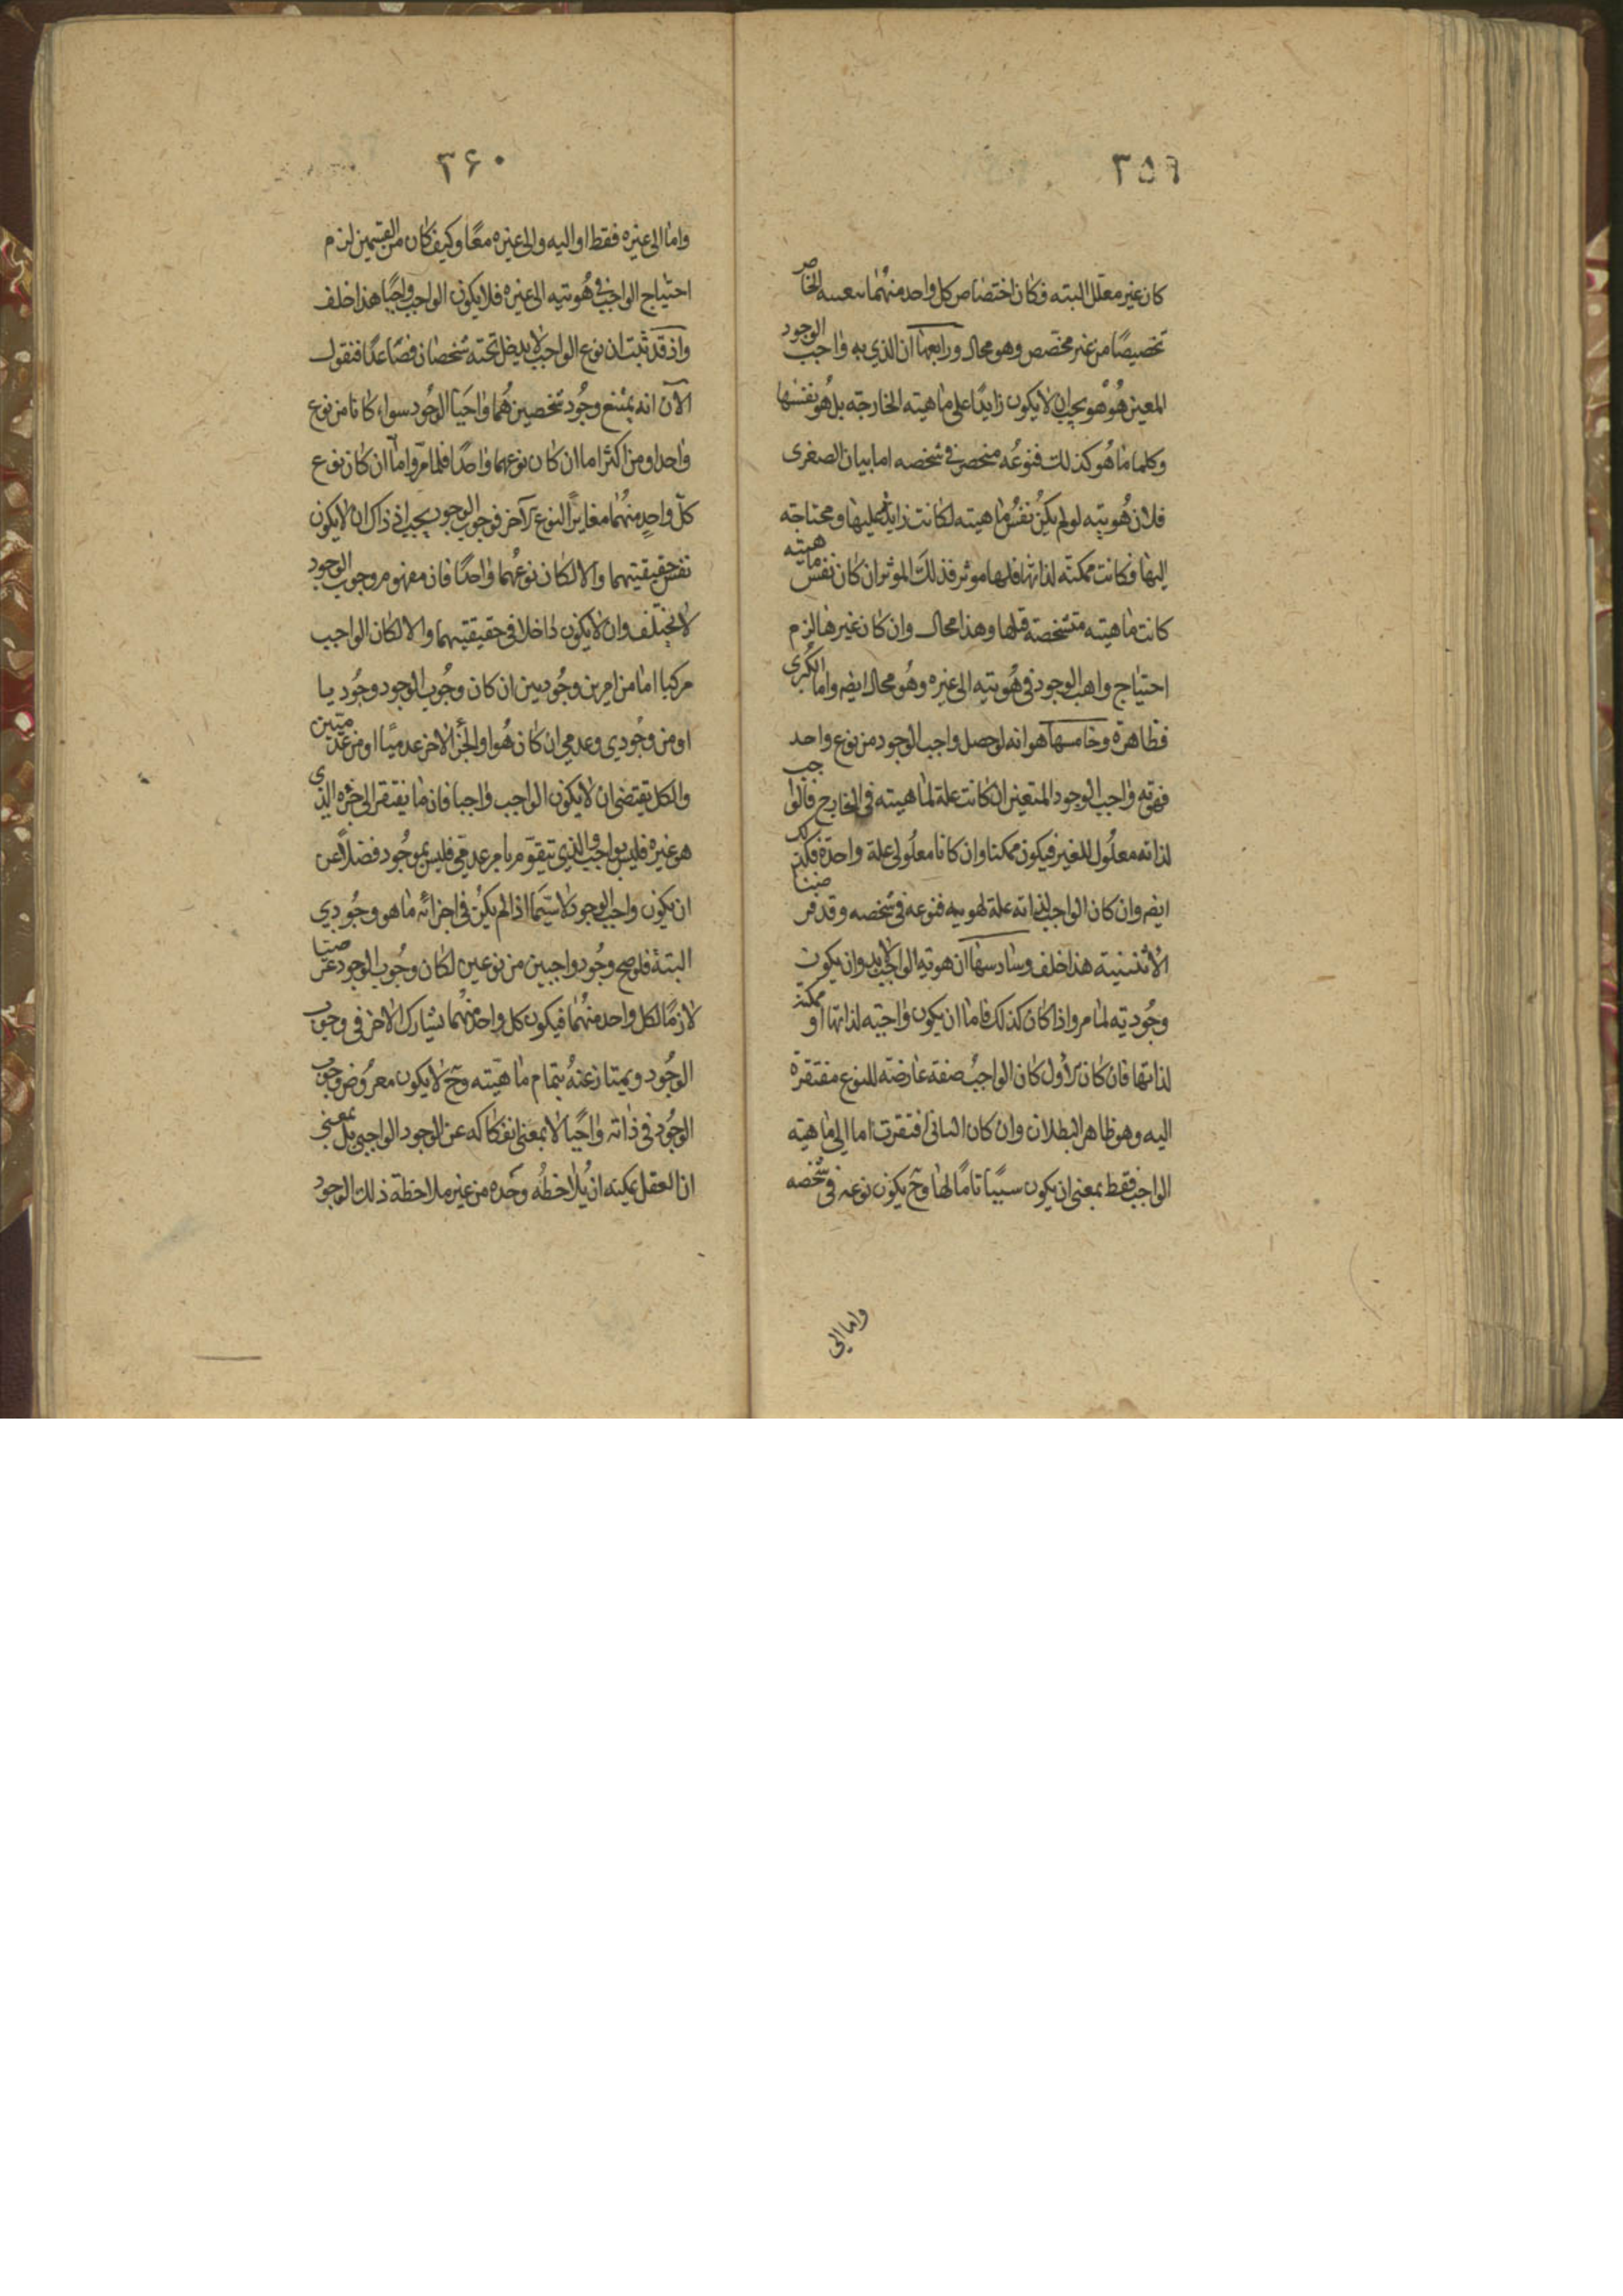 ٣٥٩
كان غير معلل البته فكان اختصاص كل واحد منهما بتعينه الخاص
تخصيصًا من غير مخصص وهو محال ورابعها ان الذي به واجب الوجود
المعين هُو هو يجب ان لا يكون زايدًا على ماهيته الخارجته بل هُو نفسها
وكلما ما هُو كذلك فنوعُه منحصر في شخصه اما بيان الصغرى
فلان هُويته لو لم يكن نفسُ ماهيته لكانت زايدة عليها ومحتاجته
اليها فكانت ممكنته لذاتها فلها موثر فذلك الموثر ان كان نفس ماهيته
كانت ماهيته متشخصته قبلها وهذا محال وان كان غيرها لزم
احتياج واجب الوجود في هُويته الى غيره وهُو محال ايضر واما الكبرى
فظاهرة وخامسها هو انه لو حصل واجب الوجود من نوع واحد
فهوته واجب الوجود المتعين ان كانت علة لماهيته في الخارج فالواجب
لذاته معلُول للغير فيكون ممكنا وان كانا معلُولى علة واحدة فكذلك
ايضر وان كان الواجب لذاته علة لهويته فنوعه في شخصه وقد فرضنا
الاثنينيته هذا خلف وسادسها ان هوته الواجب لابد وان يكون
وجُوديته لما مر واذا كان كذلك فاما ان يكون واجبته لذاتها او ممكنة
لذاتها فان كان الاول كان الواجبُ صفة عارضته للنوع مفتقرة
اليه وهو ظاهر البطلان وان كان الثانى افتقرت اما الى ماهيته
الواجب فقط بمعنى ان يكون سببًا تامًا لها وح يكون نوعه في شخصه
واما الى
٣۶٠
واما الى غيره فقط او اليه والى غيره معًا وكيف كان من القسمين لزم
احتياج الواجب في هُويته الى غيره فلا يكون الواجب واجبًا هذا خلف
واذ قد ثبت ان نوع الواجب لا يدخل تحته شخصان فصاعدًا فنقول
الآن انه يمتنع وجُود شخصين هُما واجبَا الوجُود سواء كانا من نوع
واحد او من اكثر اما ان كان نوعهما واحدًا فلما مرّ واما ان كان نوع
كلّ واحدٍ منهُما مغايرًا لنوع الآخر فوجوب الوجود يجب اذ ذاك ان لا يكون
نفس حقيقتيهما والا لكان نوعُهما واحدًا فان مفهوم وجوب الوجود
لا يختلف وان لا يكون داخلا في حقيقتيهما والا لكان الواجب
مركبا اما من امرين وجُوديين ان كان وجُوب الوجود وجُوديا
او من وجُودي وعدمي ان كان هُو او الجزُ الاخر عدميًا او من عدميين
والكل يقتضي ان لا يكون الواجب واجبا فان ما يفتقر الى جزءه الذى
هو غيره فليس بواجب والذي يتقوّم بامر عدمي فليس بموجُود فضلاً عن
ان يكون واجب الوجود لا سيّما اذا لم يكن في اجزائه ما هو وجُودي
البتة فلو صح وجُود واجبين من نوعين لكان وجُوب الوجود عرضيا
لازمًا لكل واحد منهُما فيكون كل واحد منهُما يشارك الاخر في وجوب
الوجُود ويمتاز عنهُ بتمام ماهيّته وح لا يكون معرُوض وجوب
الوجُود في ذاته واجبًا لا بمعنى انفكاكه عن الوجود الواجبي بل بمعنى
ان العقل يمكنه ان يُلاحظُه وحَده من غير ملاحظة ذلك الوجود